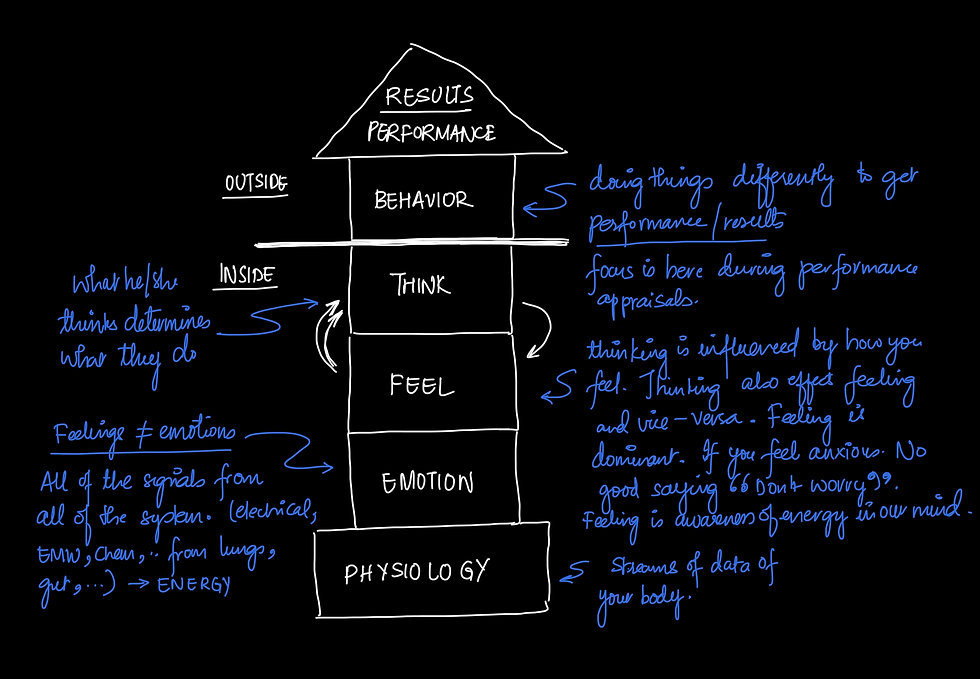 RESULTS
PERFORMANCE
OUTSIDE
BEHAVIOR
doing things differently to get
performance/results
focus is here during performance
appraisals.
INSIDE
THINK
What he/she
thinks determines
what they do
FEEL
thinking is influenced by how you
feel. Thinking also effect feeling
and vice-versa. Feeling is
dominant. If you feel anxious. No
good saying "Don't worry".
Feeling is awareness of energy in our mind.
Feelings ≠ emotions
All of the signals from
all of the system. (electrical,
EMW, Chem, .. from lungs,
gut, ...) → ENERGY
EMOTION
PHYSIOLOGY
Streams of data of
your body.